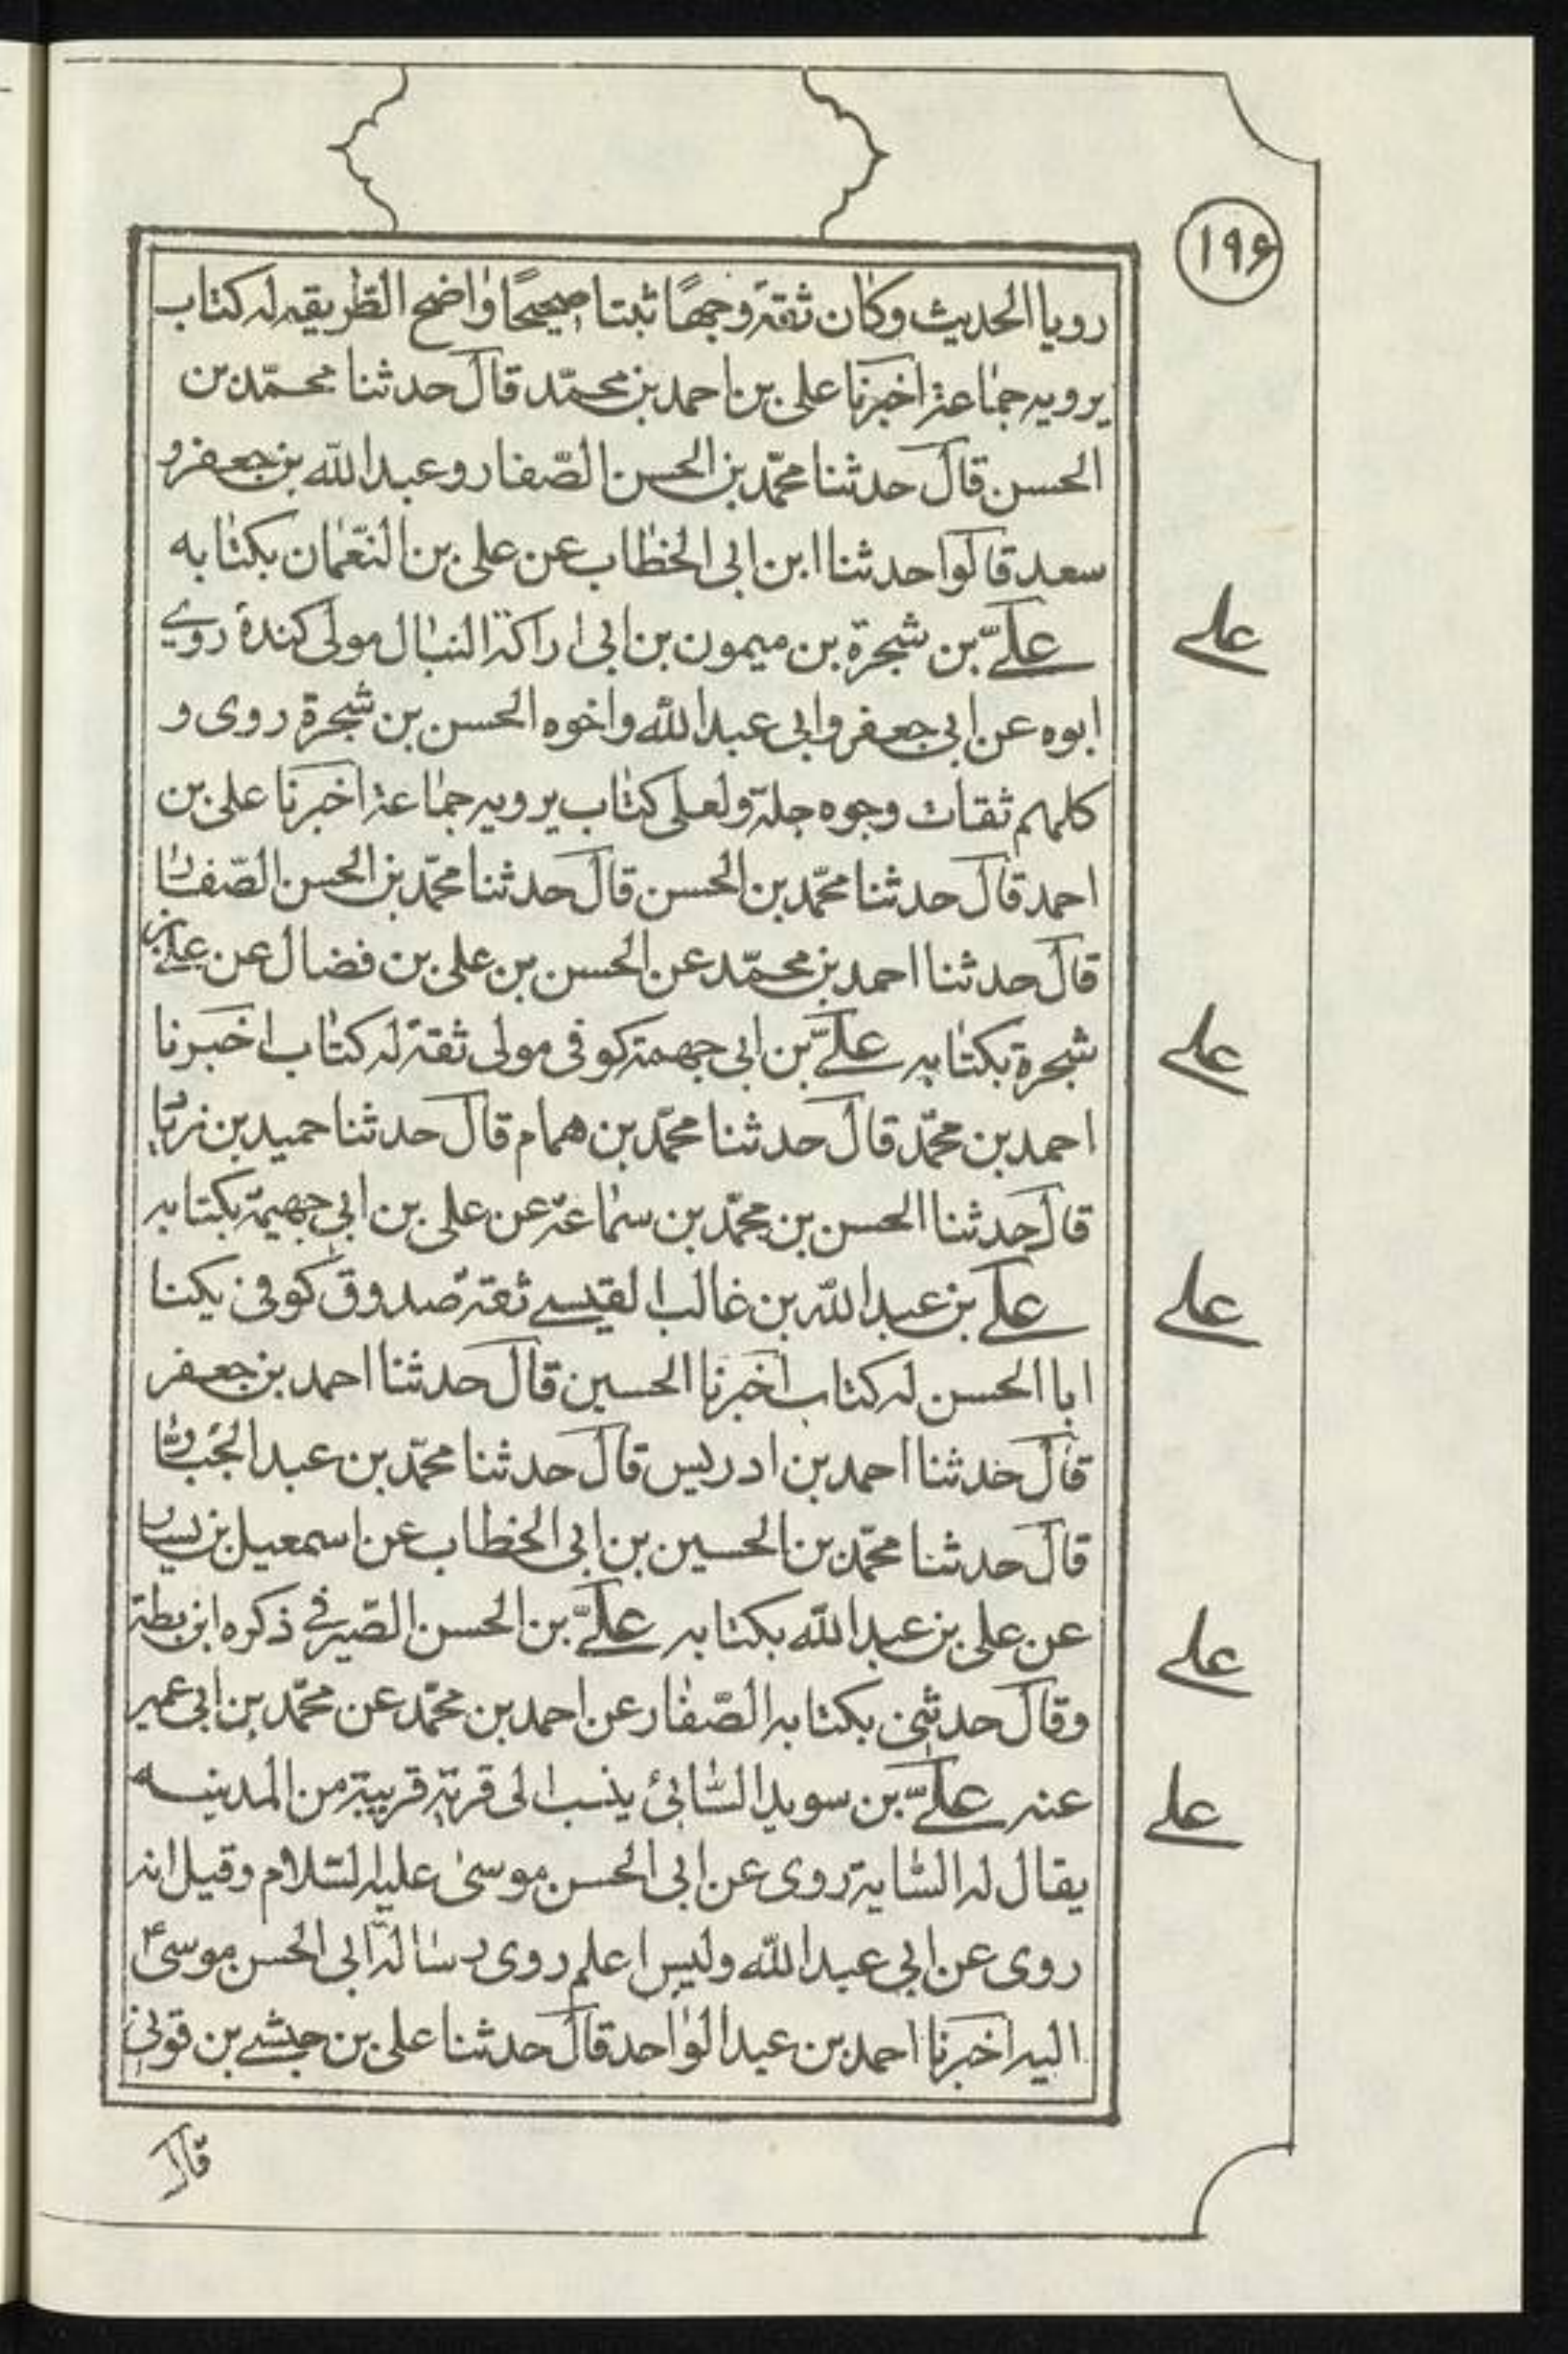 ۱۹۶
رويا الحديث وكان ثقة وجهًا ثبتا صحيحًا واضح الطريقه له كتاب
يرويه جماعة اخبرنا على بن احمد بن محمّد قال حدثنا محمّد بن
الحسن قال حدثنا محمّد بن الحسن الصّفار وعبد الله بن جعفر و
سعد قالوا حدثنا ابن ابى الخطاب عن على بن النّعمان بكتابه
علىّ بن شجرة بن ميمون بن ابى اراكة النبال مولى كندة روى
ابوه عن ابى جعفر وابى عبد الله واخوه الحسن بن شجرة روى و
كلهم ثقات وجوه جلة ولعلى كتاب يرويه جماعة اخبرنا على بن
احمد قال حدثنا محمّد بن الحسن قال حدثنا محمّد بن الحسن الصّفار
قال حدثنا احمد بن محمّد عن الحسن بن على بن فضال عن على بن
شجرة بكتابه علىّ بن ابى جهمة كوفى مولى ثقة له كتاب اخبرنا
احمد بن محمّد قال حدثنا محمّد بن همام قال حدثنا حميد بن زياد
قال حدثنا الحسن بن محمّد بن سماعة عن على بن ابى جهيمة بكتابه
على بن عبد الله بن غالب القيسى ثقة صدوق كوفى يكنا
ابا الحسن له كتاب اخبرنا الحسين قال حدثنا احمد بن جعفر
قال حدثنا احمد بن ادريس قال حدثنا محمّد بن عبد الجبّار
قال حدثنا محمّد بن الحسين بن ابى الخطاب عن اسمعيل بن يسار
عن على بن عبد الله بكتابه علىّ بن الحسن الصّيرفى ذكره ابن بطة
وقال حدثنى بكتابه الصّفار عن احمد بن محمّد عن محمّد بن ابى عمير
عنه علىّ بن سويد السّائى ينسب الى قرية قريبة من المدينه
يقال له السّاية روى عن ابى الحسن موسى عليه السّلام وقيل انه
روى عن ابى عبد الله وليس اعلم روى رسالة ابى الحسن موسى ع
اليه اخبرنا احمد بن عبد الواحد قال حدثنا على بن حبشى بن قونى
قال
على
على
على
على
على